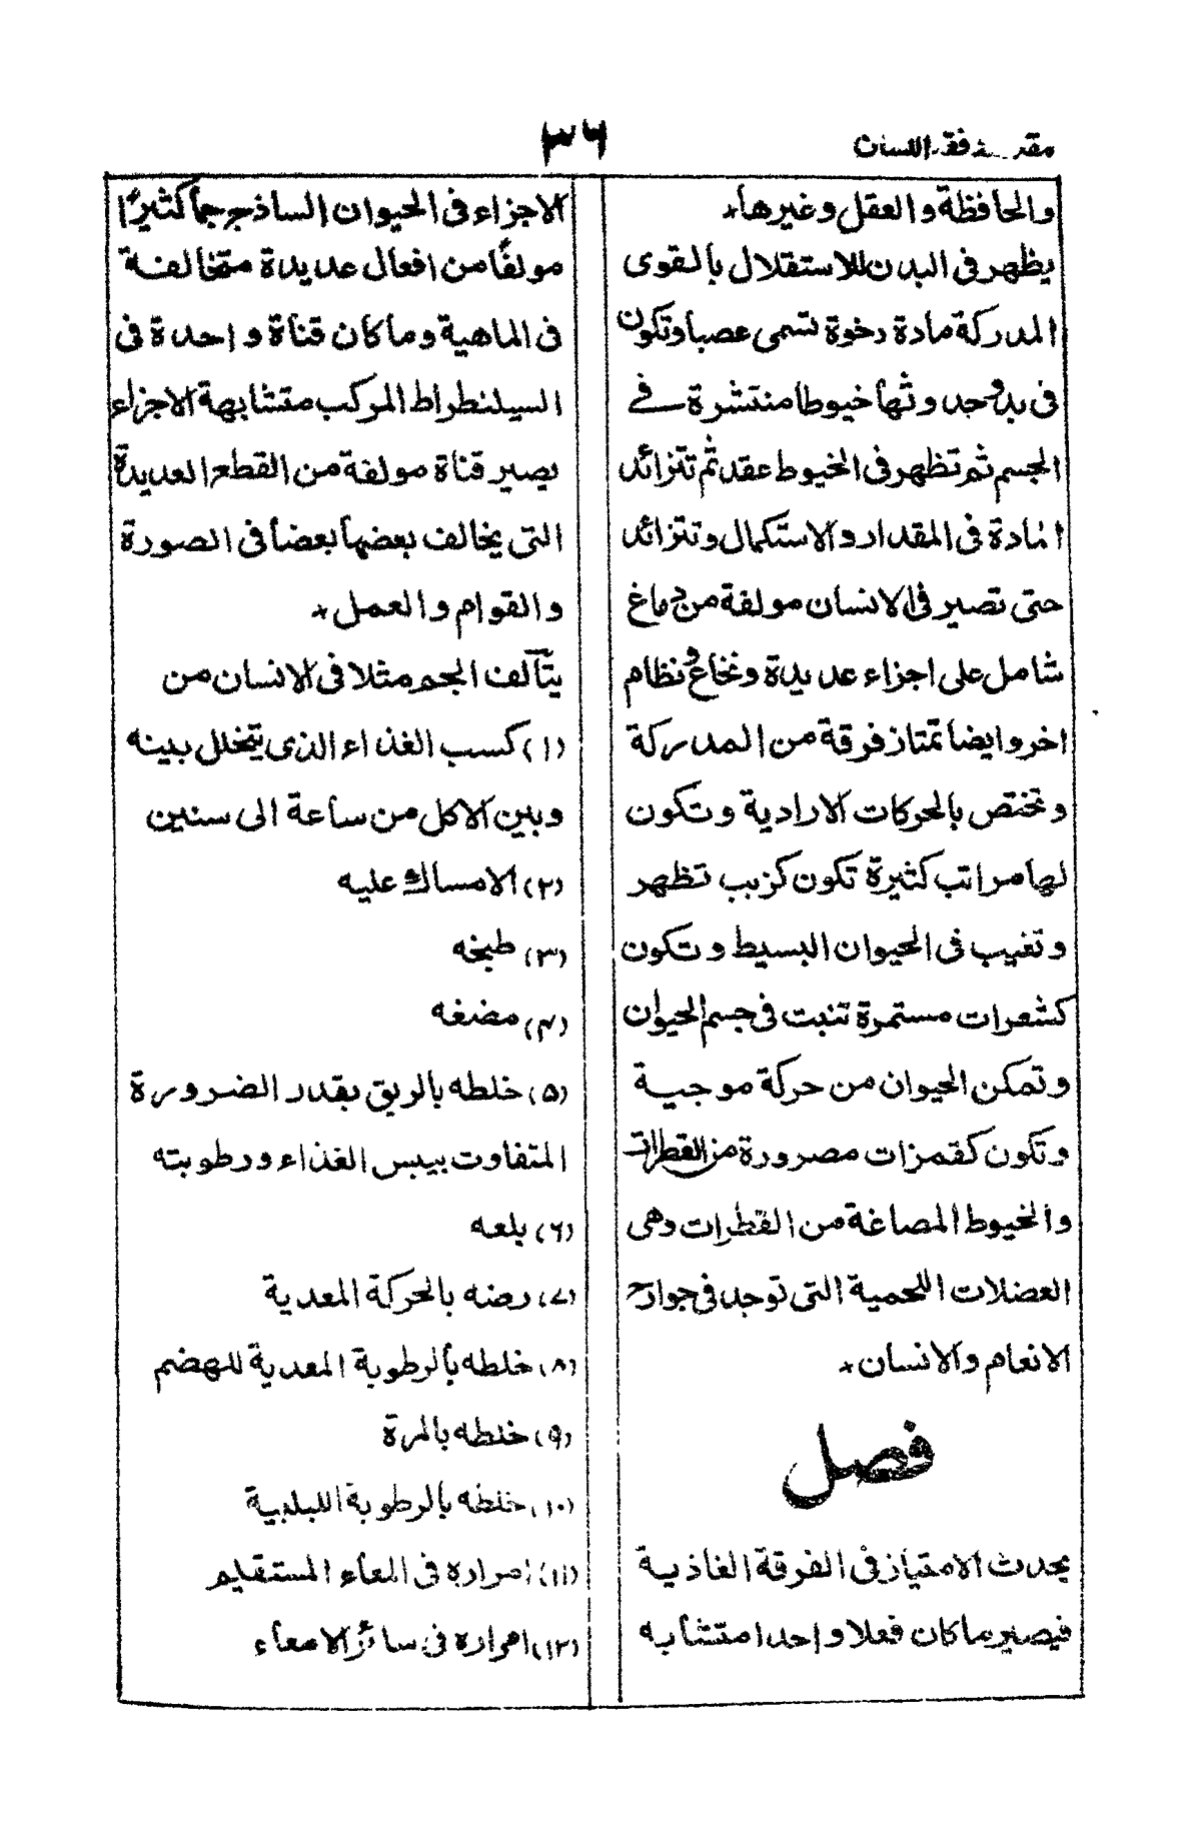 مقدمة فقه اللسان
٣٦
والحافظة والعقل وغيرها*
يظهر فى البدن للاستقلال بالقوى
المدركة مادة رخوة تسمى عصبا وتكون
فى بدو حدوثها خيوطا منتشرة فى
الجسم ثم تظهر فى الخيوط عقد ثم تتزائد
المادة فى المقدار والاستكمال وتتزائد
حتى تصير فى الانسان مولفة من دماغ
شامل على اجزاء عديدة ونخاع ونظام
اخر وايضا تمتاز فرقة من المدركة
وتختص بالحركات الارادية وتكون
لها مراتب كثيرة تكون كزبب تظهر
وتغيب فى الحيوان البسيط وتكون
كشعرات مستمرة تنبت فى جسم الحيوان
وتمكن الحيوان من حركة موجية
وتكون كقمزات مصرورة من القطرات
والخيوط المصاغة من القطرات وهى
العضلات اللحمية التى توجد فى جوارح
الانعام والانسان*
فصل
يحدث الامتياز فى الفرقة الغاذية
فيصير ما كان فعلا واحدا متشابه
الاجزاء فى الحيوان الساذج جما كثيرًا
مولفًا من افعال عديدة متخالفة
فى الماهية وما كان قناة واحدة فى
السيلنطراط المركب متشابهة الاجزاء
يصير قناة مولفة من القطع العديدة
التى يخالف بعضها بعضا فى الصورة
والقوام والعمل*
يتآلف الجم مثلا فى الانسان من
(١) كسب الغذاء الذى يتخلل بينه
وبين الاكل من ساعة الى سنين
(٢) الامساك عليه
(٣) طبخه
(۴) مضغه
(۵) خلطه بالريق بقدر الضرورة
المتفاوت بيبس الغذاء ورطوبته
(۶) بلعه
(٧) رضه بالحركة المعدية
(٨) خلطه بالرطوبة المعدية للهضم
(٩) خلطه بالمرة
(١٠) خلطه بالرطوبة اللبلبية
(١١) امراره فى المعاء المستقيم
(١٢) امراره فى سائر الامعاء